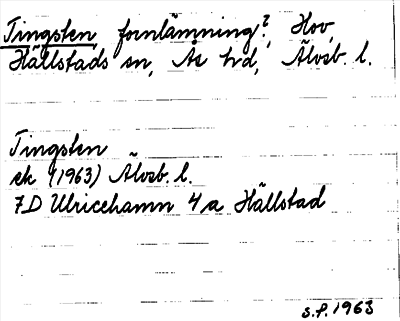 Tingsten, fornlämning?, Hov,
Hällstads sn, Ås hd, Älvsb. l.
Tingsten
ek (1963) Älvsb. l.
7D Ulricehamn 4a Hällstad
S.F. 1963